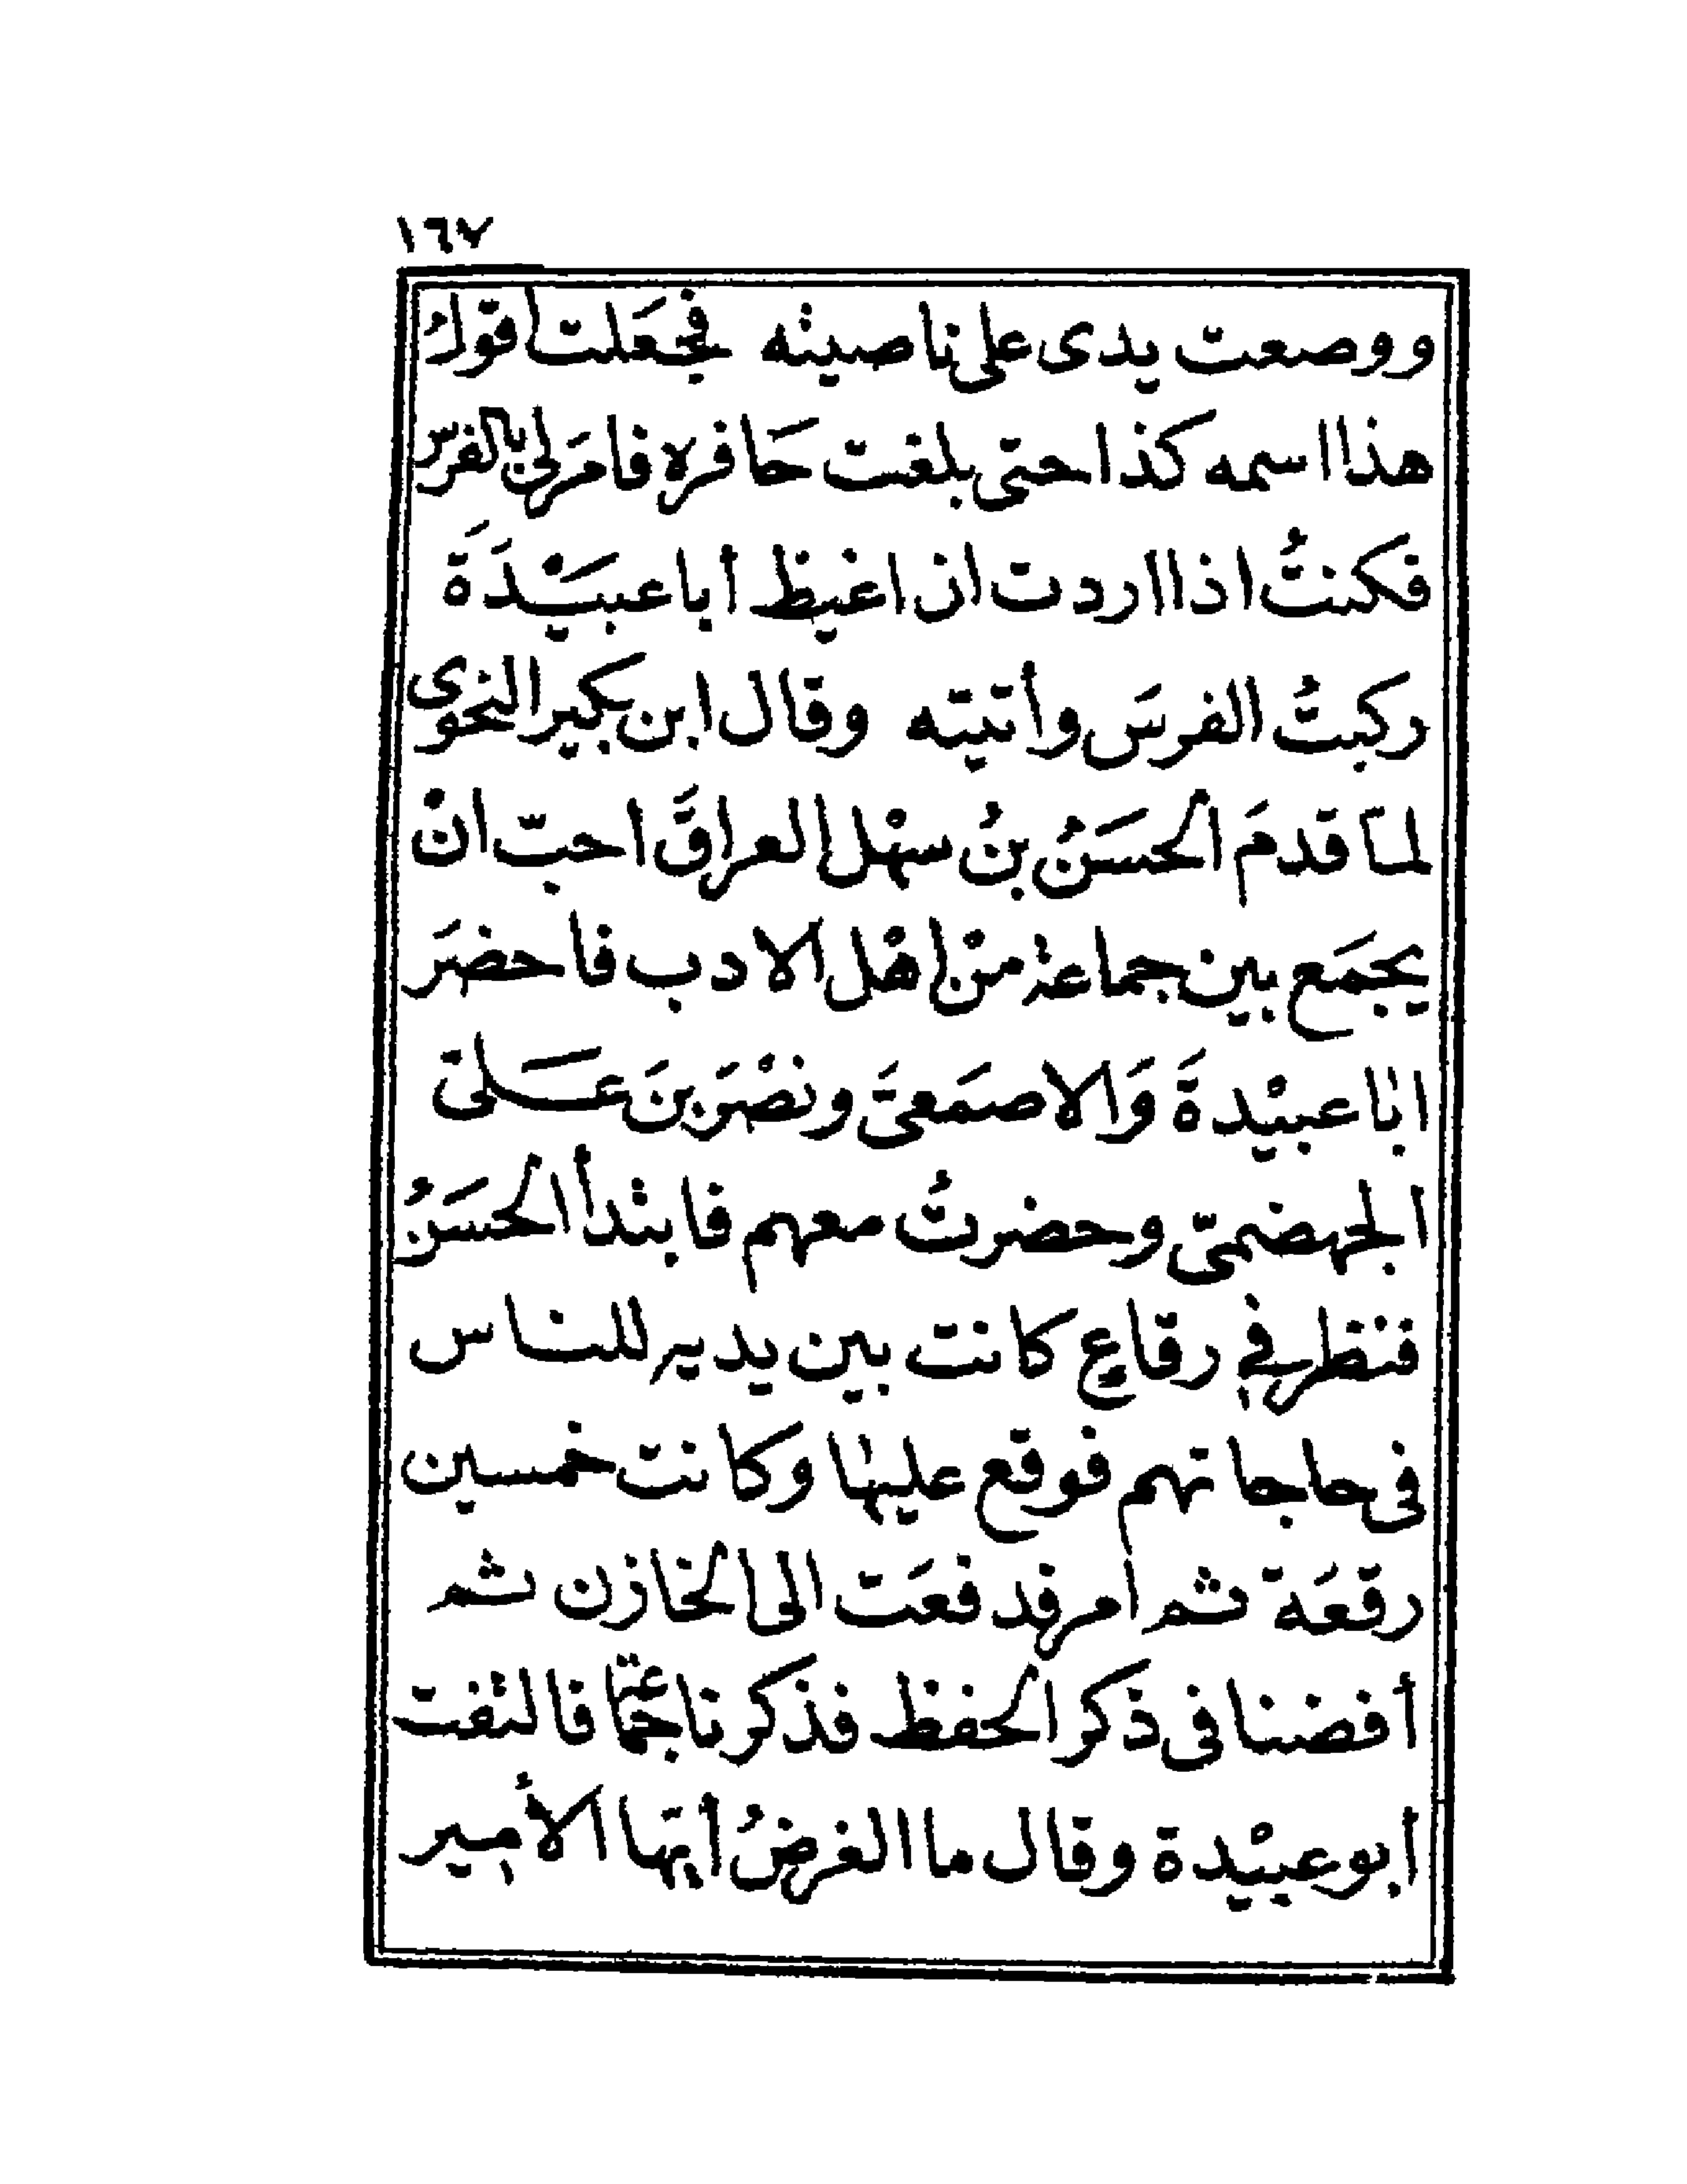 ١٦٧
ووصعت يدى على ناصيته فجعَلت اقولُ
هذا اسمه كذا حتى بلغت حَافره فامَرلى بالفرس
فكنتُ اذا اردت ان اغيظ أبا عبيْدَةَ
ركبتُ الفرسَ وأتيته وقال ابن بكير النحوى
لمّا قدمَ الحسَنُ بنُ سهْل العراقَ احبّ انْ
يجمَع بين جماعة منْ اهْل الادب فاحضَر
ابا عبيْدةَ وَالاصمَعىَّ ونصْرَ بنَ عَلىّ
الجهضمىّ وحضرتُ معهم فابتدأ الحسَنُ
فنظر فى رقاع كانت بين يديه للناس
فى حاجاتهم فوقع عليها وكانت خمسين
رقعَة ثم امر فدفعَت الى الخازن ثم
أفضنا فى ذكر الحفظ فذكرنا جماعة فالتفت
أبو عبيْدة وقال ما الغرضُ أيّها الأمير